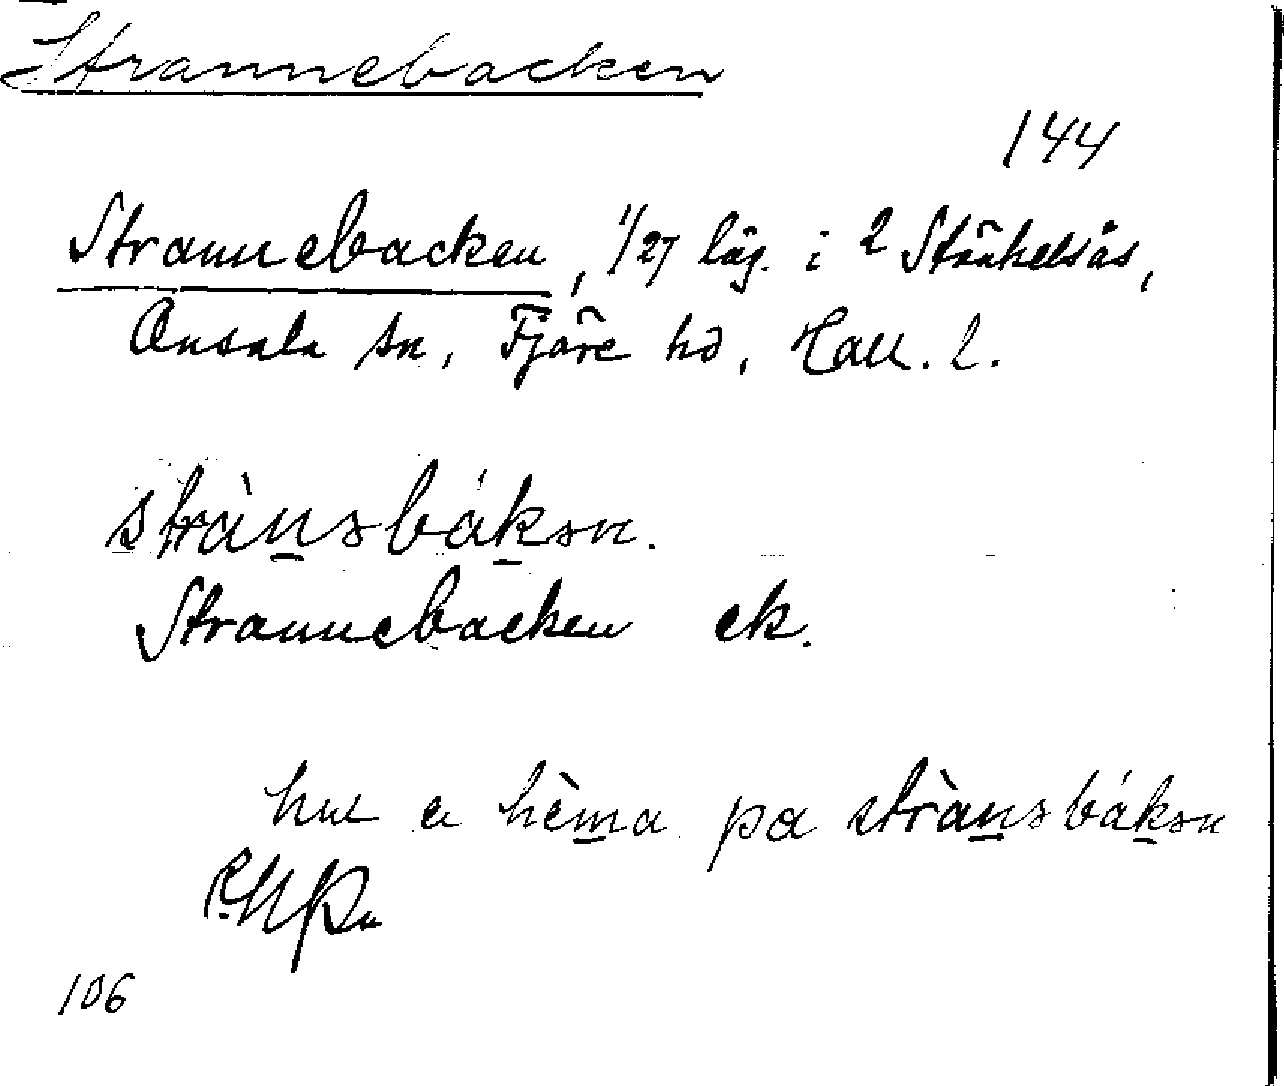 Strannebacken
144
Strannebacken, 1/27 läg. i 2 Stråhelsås,
Onsala sn, Fjäre hd, Hall. l.
strànəbákən.
Strannebacken ek.
hu e hèma pa strànəbákən
106